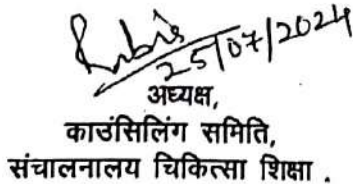 25/07/2024
अध्यक्ष,
काउंसिलिंग समिति,
संचालनालय चिकित्सा शिक्षा .